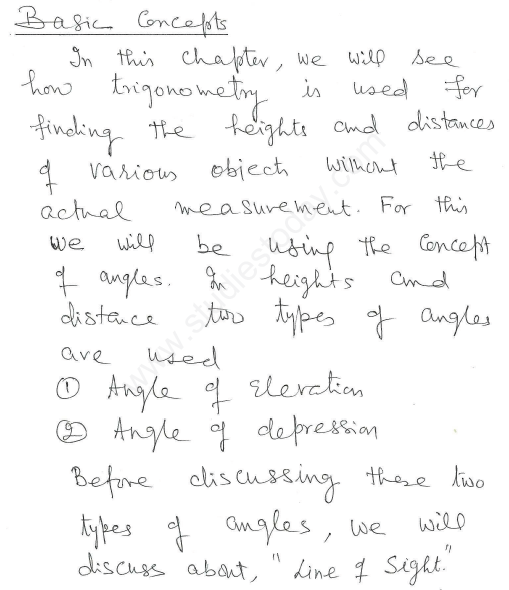 Basic Concepts
In this chapter, we will see
how trigonometry is used for
finding the heights and distances
of various object without the
actual measurement. For this
we will be using the Concept
of angles. In heights and
distance two types of angles
are used
① Angle of Elevation
② Angle of depression
Before discussing these two
types of angles, we will
discuss about, "Line of Sight."
www.studiestoday.com